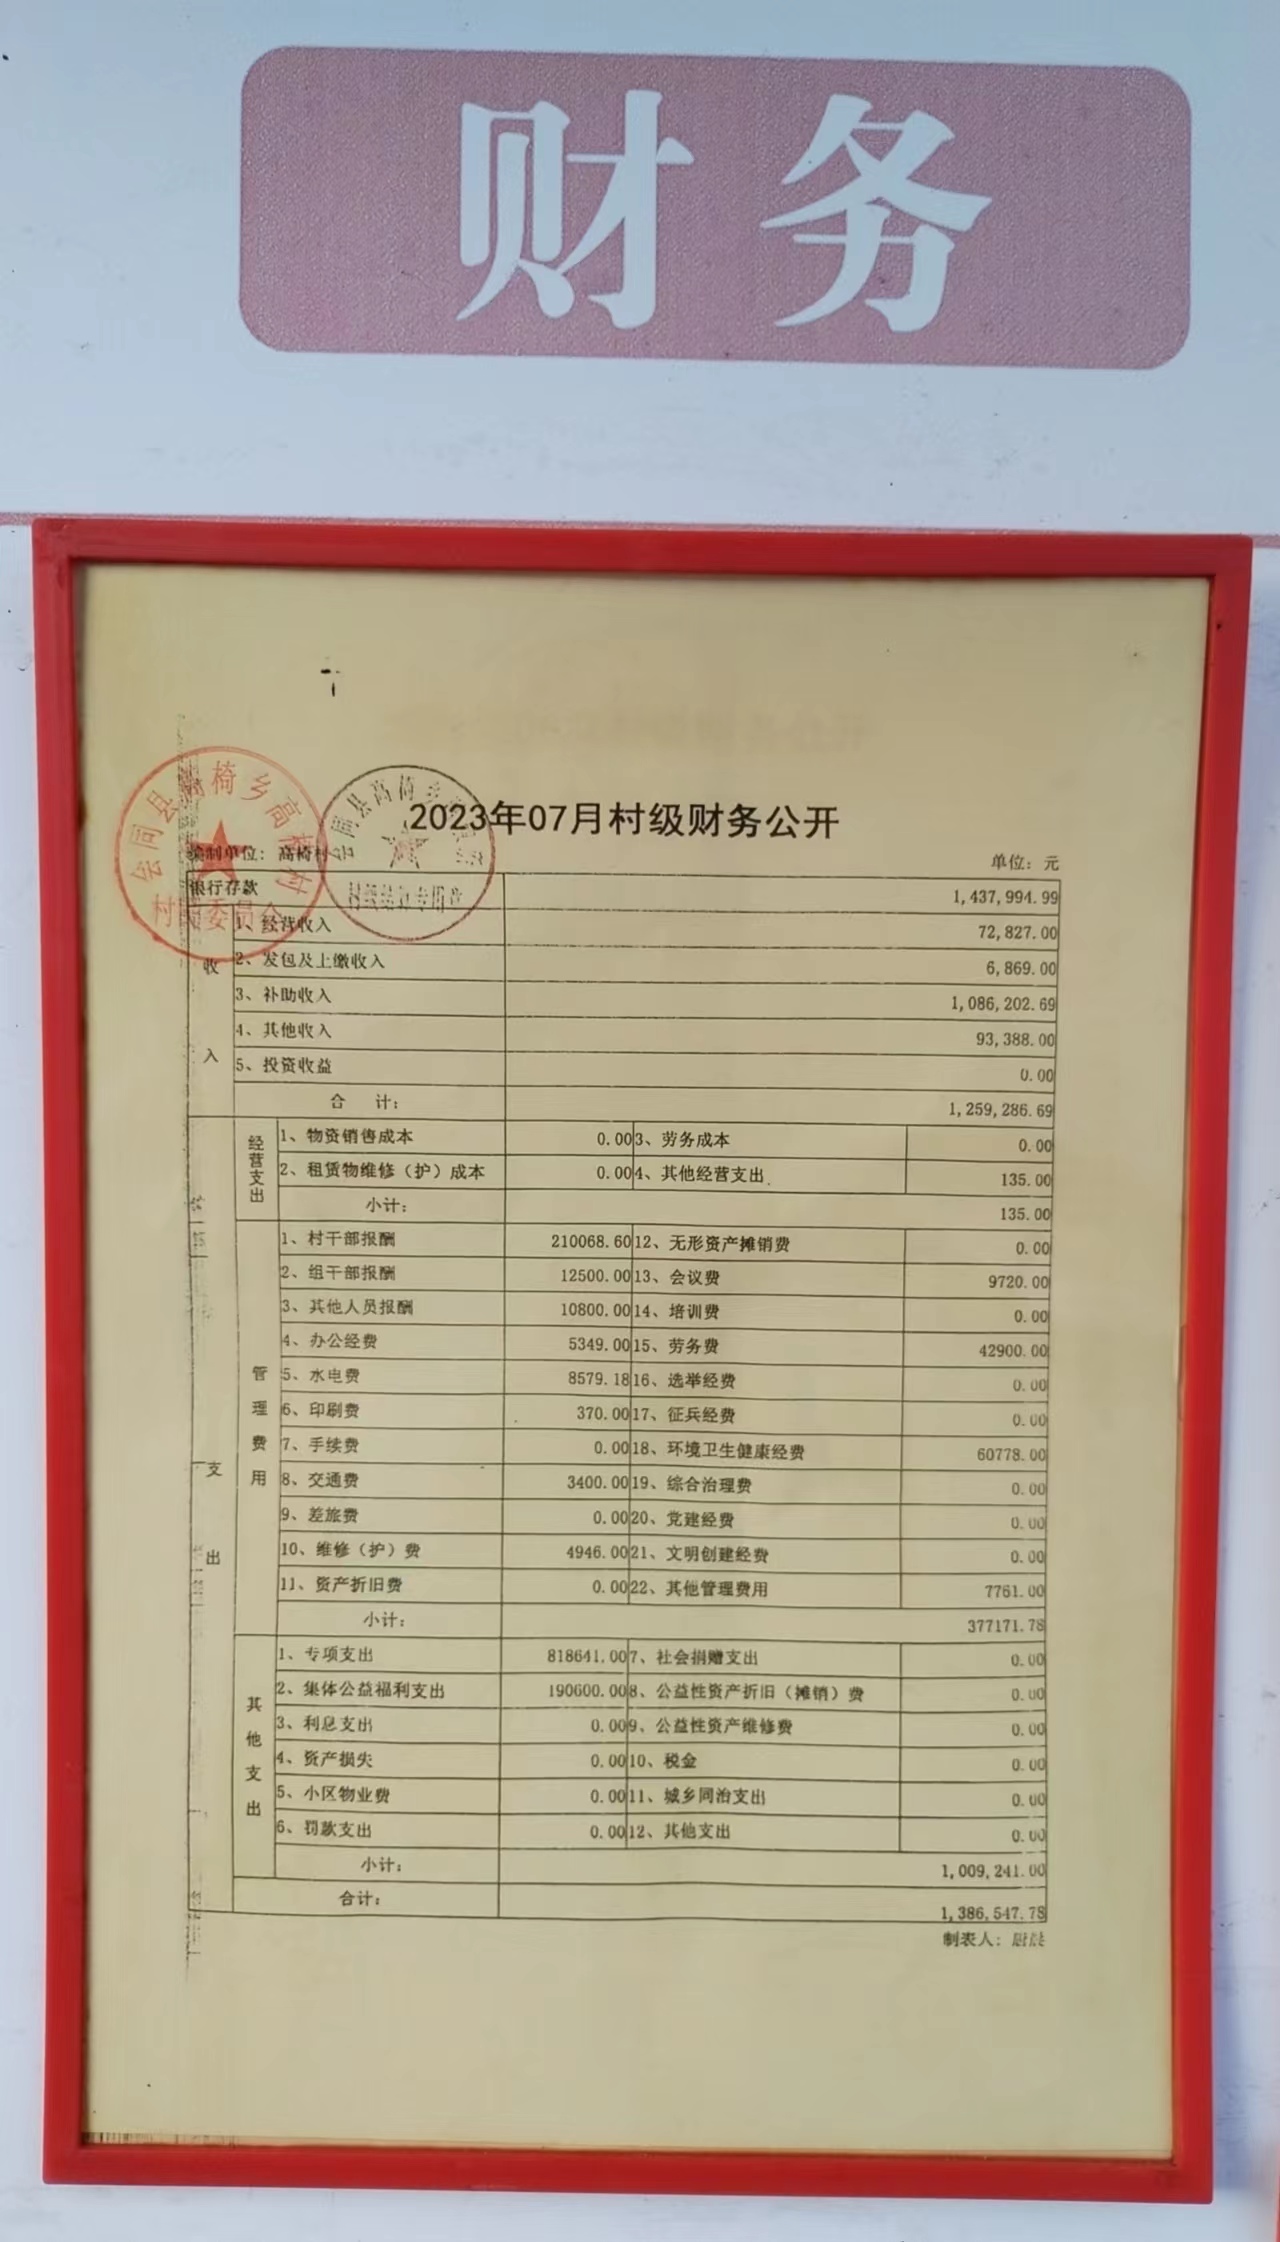 财务
2023年07月村级财务公开
编制单位：高椅村 单位：元
银行存款 1,437,994.99
收入
1、经营收入 72,827.00
2、发包及上缴收入 6,869.00
3、补助收入 1,086,202.69
4、其他收入 93,388.00
5、投资收益 0.00
合 计： 1,259,286.69
支出
经营支出
1、物资销售成本 0.00 3、劳务成本 0.00
2、租赁物维修（护）成本 0.00 4、其他经营支出 135.00
小计： 135.00
管理费用
1、村干部报酬 210068.60 12、无形资产摊销费 0.00
2、组干部报酬 12500.00 13、会议费 9720.00
3、其他人员报酬 10800.00 14、培训费 0.00
4、办公经费 5349.00 15、劳务费 42900.00
5、水电费 8579.18 16、选举经费 0.00
6、印刷费 370.00 17、征兵经费 0.00
7、手续费 0.00 18、环境卫生健康经费 60778.00
8、交通费 3400.00 19、综合治理费 0.00
9、差旅费 0.00 20、党建经费 0.00
10、维修（护）费 4946.00 21、文明创建经费 0.00
11、资产折旧费 0.00 22、其他管理费用 7761.00
小计： 377171.78
其他支出
1、专项支出 818641.00 7、社会捐赠支出 0.00
2、集体公益福利支出 190600.00 8、公益性资产折旧（摊销）费 0.00
3、利息支出 0.00 9、公益性资产维修费 0.00
4、资产损失 0.00 10、税金 0.00
5、小区物业费 0.00 11、城乡同治支出 0.00
6、罚款支出 0.00 12、其他支出 0.00
小计： 1,009,241.00
合计： 1,386,547.78
制表人：
会同县高椅乡高椅村
村民委员会